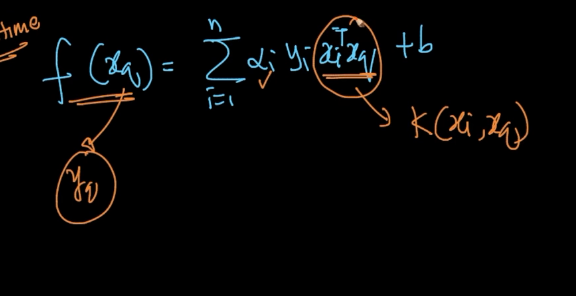 time
f(x_q) = \sum_{i=1}^{n} α_i y_i x_i^T x_q + b
K(x_i, x_q)
y_q